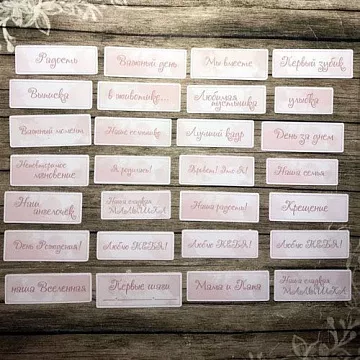 Радость
Важный день
Мы вместе
Первый зубик
Выписка
в животике...
Любимая
пустышка
улыбка
Важный момент
Наше солнышко
Лучший кадр
День за днем
Неповторимое
мгновение
Я родился!
Привет! Это Я!
Наша семья
Наш
ангелочек
Наша сладкая
МАЛЫШКА
Наша радость!
Крещение
День Рождения!
Люблю ТЕБЯ!
Люблю ТЕБЯ!
Люблю ТЕБЯ!
наша Вселенная
Первые шаги
Мама и Папа
Наша сладкая
МАЛЫШКА